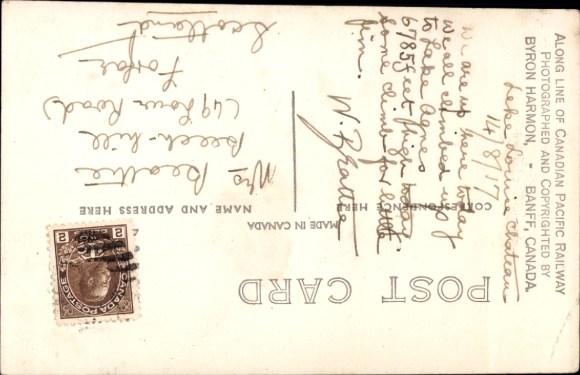 ALONG LINE OF CANADIAN PACIFIC RAILWAY
PHOTOGRAPHED AND COPYRIGHTED BY
BYRON HARMON, - BANFF, CANADA.
POST CARD
CORRESPONDENCE HERE
MADE IN CANADA
NAME AND ADDRESS HERE
Lake Louise Chateau
14/8/17
We are up here today
We all climbed up
to Lake Agnes
6785 feet high today.
Some climb for little
Jim.
W. Beattie
Mrs
Beattie
Beech-hill
(49 Lour Road)
Forfar
Scotland
CANADA POSTAGE
2 2